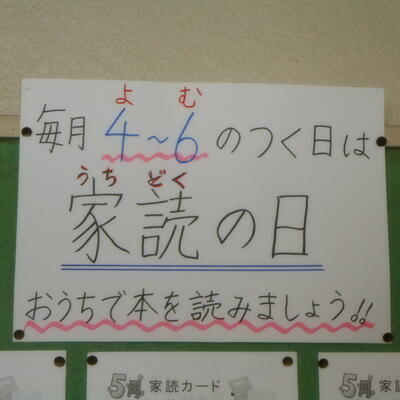 よ む
毎月 4～6 のつく日は
うち どく
家読の日
おうちで本を読みましょう!!
5月 家読カード
5月 家読